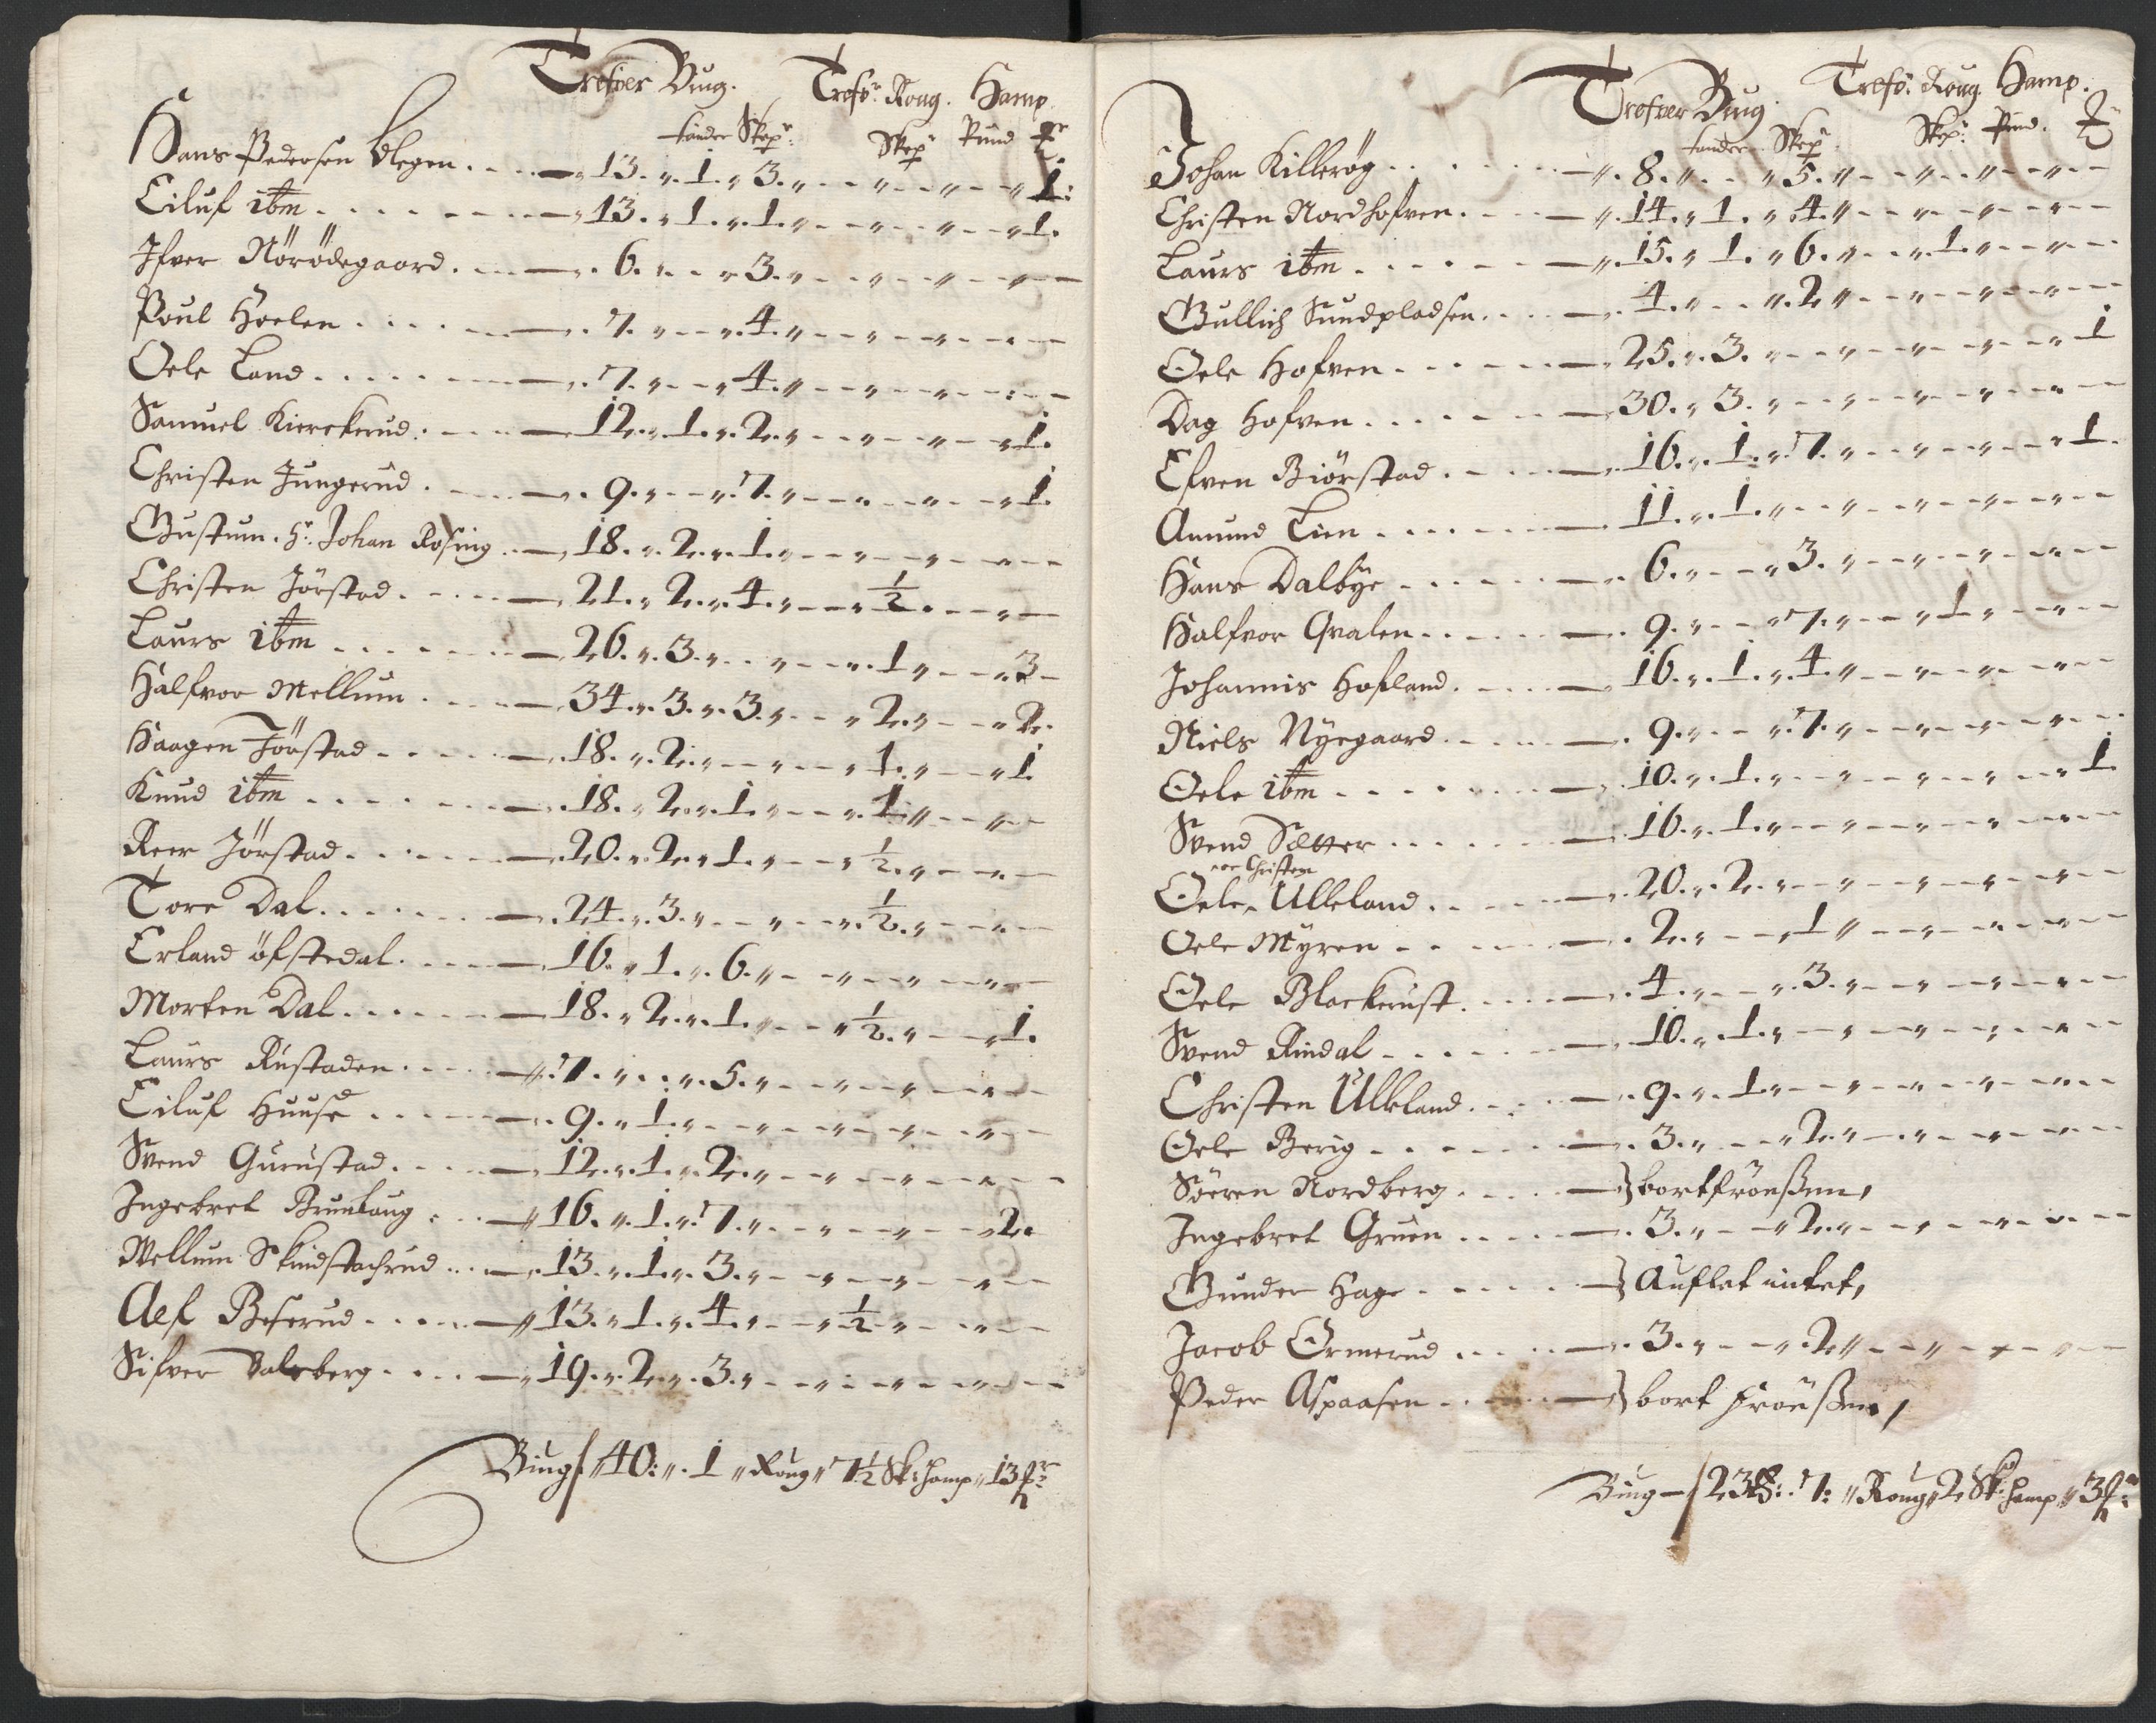 Trefver Bug. Trefv: Roug. Hamp.
tønder Skep: Skep Pund
Hans Pedersen Olegen . . . 13. 1. 3. 1:
Eiluf ibm . . . 13. 1. 1. 1.
Ifver Nörödegaard . . . 6. 3.
Poul Hoelen . . . 7. 4.
Oele Land . . . 7. 4.
Samuel Kierckerud . . . 12. 1. 2. 1.
Christen Jungerud . . . 9. 7. 1.
Gustum. Hr. Johan Rosing . . . 18. 2. 1.
Christen Jörstad . . . 21. 2. 4. ½.
Laurs ibm . . . 26. 3. 1 3
Halfvor Mellum . . . 34. 3. 3. 2. 2.
Haagen Jörstad . . . 18. 2. 1. 1.
Knud ibm . . . 18. 2. 1. 1
Reer Jörstad . . . 20. 2. 1. ½.
Tore Dal . . . 24. 3. ½.
Erland öfstedal . . . 16. 1. 6.
Morten Dal . . . 18. 2. 1. ½. 1.
Laurs Rustaden . . . 7. 5.
Eiluf Huuse . . . 9. 1.
Svend Gurustad . . . 12. 1. 2.
Ingebret Brunlaug . . . 16. 1. 7. 2.
Mellum Skindstachrud . . . 13. 1. 3.
Alf Beserud . . . 13. 1. 4. ½
Sifver Valeberg . . . 19. 2. 3.
Biug 40: 1 Roug 7½ Sk: Hamp 13
Trefver Bug. Trefv: Roug Hamp.
tønder Skep Skep: Pund.
Johan Killerög . . . 8. 5.
Christen Nordhofven . . . 14. 1. 4.
Laurs ibm . . . 15. 1. 6. 1.
Gullich Sundpladsen . . . 4. 2
Oele Hofven . . . 25. 3. 1
Dag Hofven . . . 30. 3.
Efven Biörstad . . . 16. 1. 7. 1.
Amund Lien . . . 11. 1.
Hans Dalbÿe . . . 6. 3.
Halfvor Qvalen . . . 9. 7. 1
Johannis Hofland . . . 16. 1. 4.
Niels Nyegaard . . . 9. 7.
Oele ibm . . . 10. 1. 1.
Svend Sætter . . . 16. 1.
oc Christen
Oele Ulleland . . . 20. 2.
Oele Mÿren . . . 2. 1
Oele Blackerust . . . 4. 3.
Svend Rindal . . . 10. 1.
Christen Ulleland . . . 9. 1.
Oele Berig . . . 3. 2.
Søeren Nordberg . . . bortfröußen,
Ingebret Gruen . . . 3. 2.
Gunder Hage . . . Auflet intet,
Jacob Ormerud . . . 3. 2
Peder Aspaasen . . . bort fröußen,
Biug 238: 7: Roug 2 Sk: Hamp 3